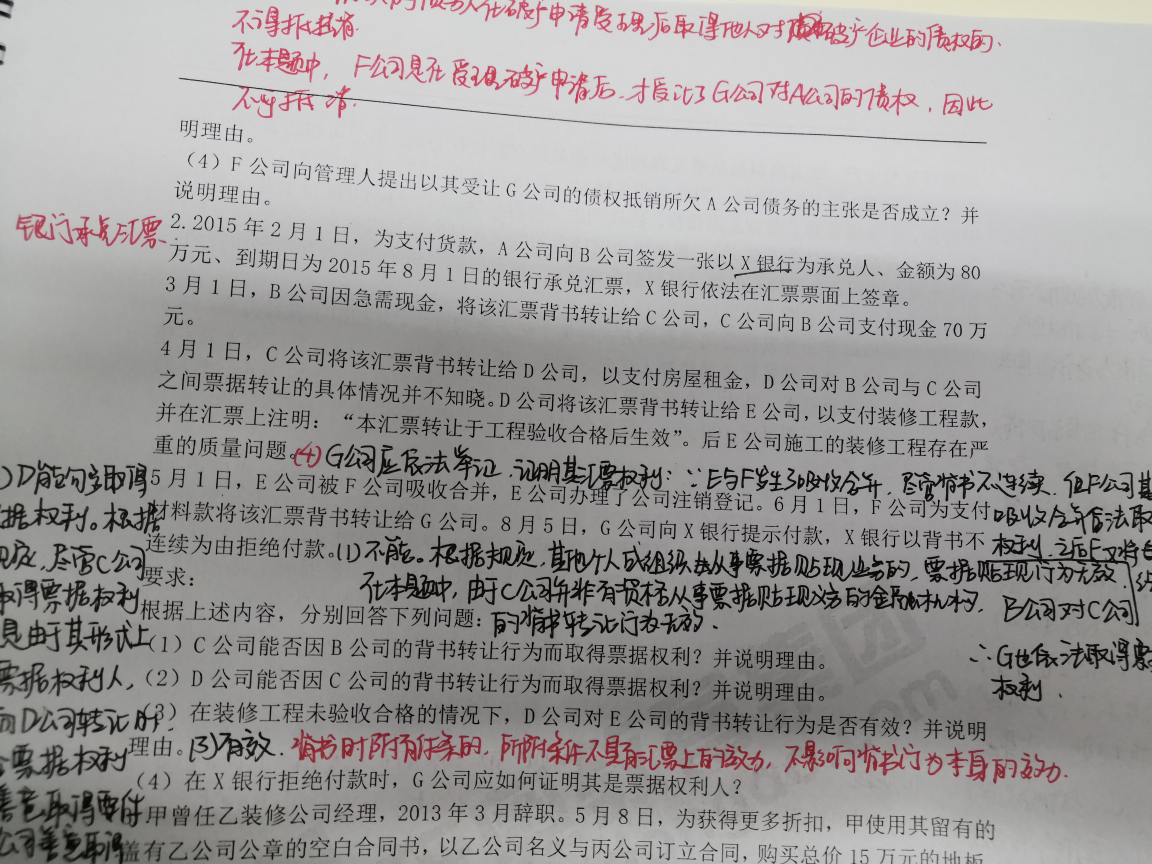 不得抵销
在本题中，F公司是在受理破产申请后，才受让了G公司对A公司的债权，因此
不得抵销
明理由。
（4）F 公司向管理人提出以其受让 G 公司的债权抵销所欠 A 公司债务的主张是否成立？并
说明理由。
银行承兑汇票
2. 2015 年 2 月 1 日，为支付货款，A 公司向 B 公司签发一张以 X 银行为承兑人、金额为 80
万元、到期日为 2015 年 8 月 1 日的银行承兑汇票，X 银行依法在汇票票面上签章。
3 月 1 日，B 公司因急需现金，将该汇票背书转让给 C 公司，C 公司向 B 公司支付现金 70 万
元。
4 月 1 日，C 公司将该汇票背书转让给 D 公司，以支付房屋租金，D 公司对 B 公司与 C 公司
之间票据转让的具体情况并不知晓。D 公司将该汇票背书转让给 E 公司，以支付装修工程款，
并在汇票上注明：“本汇票转让于工程验收合格后生效”。后 E 公司施工的装修工程存在严
重的质量问题。
(4) G公司应依法举证，证明其汇票权利：∵E与F发生了吸收合并，尽管背书不连续，但F公司
5 月 1 日，E 公司被 F 公司吸收合并，E 公司办理了公司注销登记。6 月 1 日，F 公司为支付
吸收合并依法取
材料款将该汇票背书转让给 G 公司。8 月 5 日，G 公司向 X 银行提示付款，X 银行以背书不
连续为由拒绝付款。
(1) 不能。根据规定，其他个人或组织从事票据贴现业务的，票据贴现行为无效
要求：
在本题中，由于C公司并非有资格从事票据贴现义务的金融机构，
B公司对C公司
根据上述内容，分别回答下列问题：
的背书转让行为无效.
（1）C 公司能否因 B 公司的背书转让行为而取得票据权利？并说明理由。
∴G也依法取得票
权利.
（2）D 公司能否因 C 公司的背书转让行为而取得票据权利？并说明理由。
（3）在装修工程未验收合格的情况下，D 公司对 E 公司的背书转让行为是否有效？并说明
理由。
(3)有效. 背书时附有条件的，所附条件不具有汇票上的效力，不影响背书行为本身的效力.
（4）在 X 银行拒绝付款时，G 公司应如何证明其是票据权利人？
甲曾任乙装修公司经理，2013 年 3 月辞职。5 月 8 日，为获得更多折扣，甲使用其留有的
盖有乙公司公章的空白合同书，以乙公司名义与丙公司订立合同，购买总价 15 万元的地板
D能否取得
据权利。根据
规定，尽管C公司
取得票据权利
是由于其形式上
票据权利人，
而D公司转让时
票据权利
善意取得要件
公司善意取得